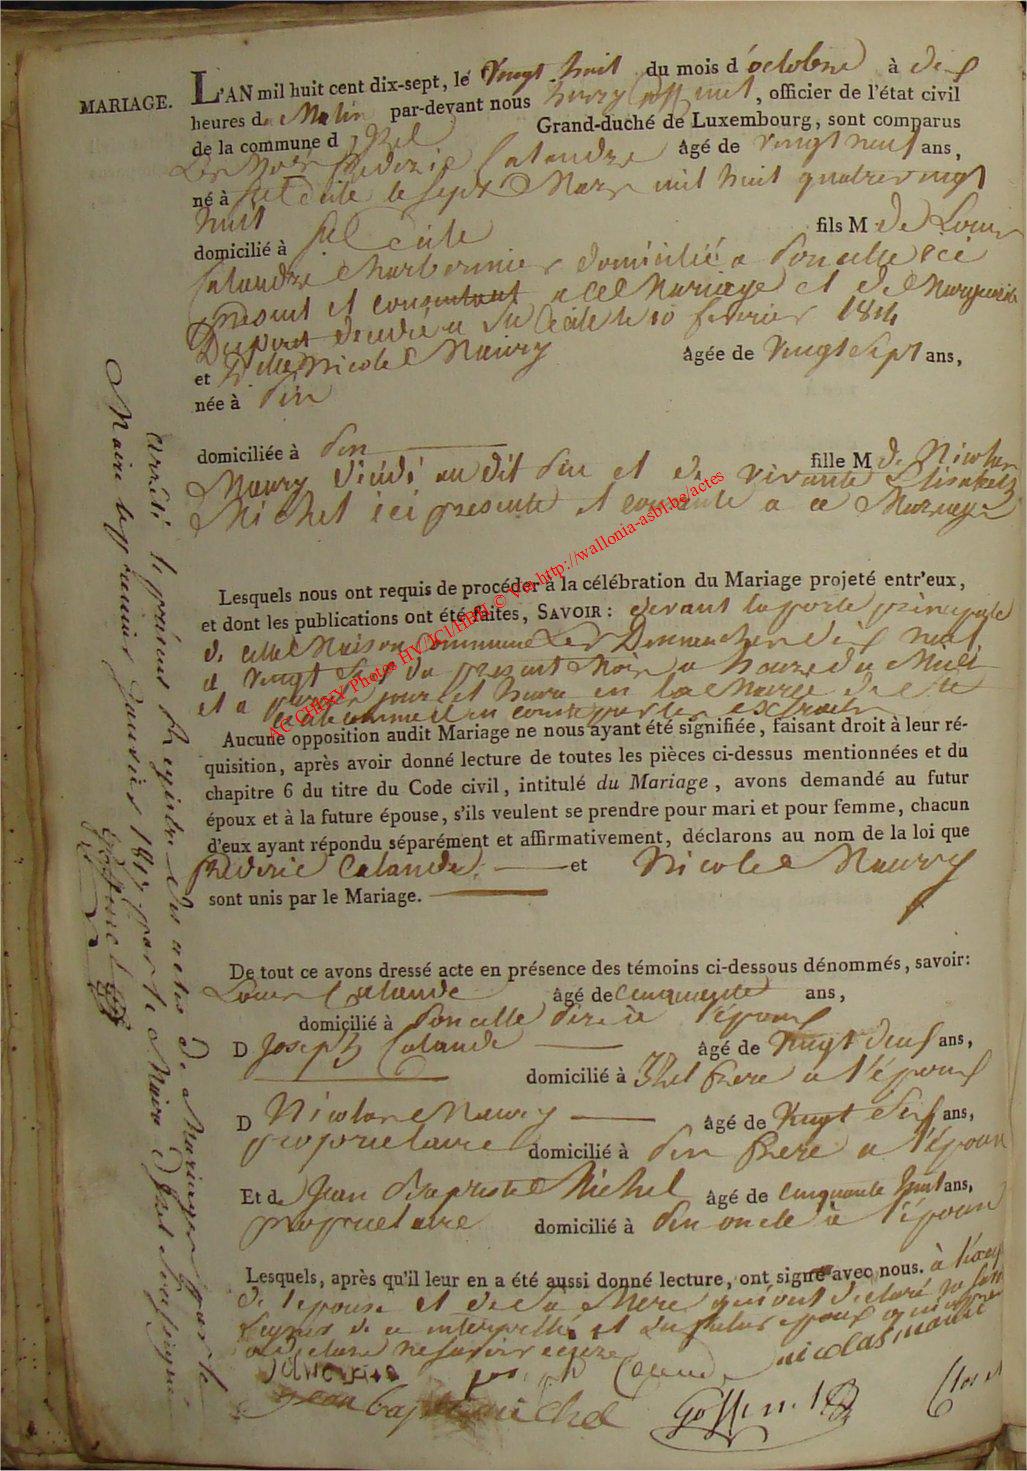 MARIAGE.
L'AN mil huit cent dix-sept, le Vingt huit du mois d'octobre à dix
heures du Matin par-devant nous henry Goffinet, officier de l'état civil
de la commune d'Izel Grand-duché de Luxembourg, sont comparus
Frederic Calandre âgé de vingt neuf ans,
né à Ste Cecile le sept Mars mil huit quatrevingt
huit
domicilié à Ste Cecile fils M de Louis
Calandre charbonnier domicilié a Poncelle ici
present et consentant a ce Mariage et de Marguerite
decedée a Ste Cecile le 10 fevrier 1814
et Nicole Maury âgée de Vingt Sept ans,
née à Pin
domiciliée à Pin
fille M de Nicolas
Maury audit Pin et de vivante Elisabeth
Michel ici presente et consente a ce Mariage
Lesquels nous ont requis de procéder à la célébration du Mariage projeté entr'eux,
et dont les publications ont été faites, SAVOIR : devant la porte principale
de cette Maison Commune Les Dimanches dix neuf
et vingt six du present Mois a heure de Midi
et a pareils jour et heure en la Mairie de Ste
Cecile comme il en conste par les extraits
Aucune opposition audit Mariage ne nous ayant été signifiée, faisant droit à leur ré-
quisition, après avoir donné lecture de toutes les pièces ci-dessus mentionnées et du
chapitre 6 du titre du Code civil, intitulé du Mariage, avons demandé au futur
époux et à la future épouse, s'ils veulent se prendre pour mari et pour femme, chacun
d'eux ayant répondu séparément et affirmativement, déclarons au nom de la loi que
frederic Calande et Nicole Maury
sont unis par le Mariage.
De tout ce avons dressé acte en présence des témoins ci-dessous dénommés, savoir:
Louis Calande âgé de cinquante ans,
domicilié à Poncelle Pere à l'époux
D Joseph Calande âgé de Vingt deux ans,
domicilié à Izel frere a l'époux
D Nicolas Maury âgé de Vingt six ans,
proprietaire domicilié à Pin frere a l'épouse
Et de Jean Baptiste Michel âgé de cinquante huit ans,
proprietaire domicilié à Pin oncle à l'épouse
Lesquels, après qu'il leur en a été aussi donné lecture, ont signé avec nous. à
de l'epouse et de sa Mere qui ont declaré ne savoir
signer de ce interpellés et du futur epoux qui
a declaré ne savoir ecrire
nicolas mauri
jean baptiste michel
Goffinet
arrêté le présent Registre des actes de Mariages par le
Maire le premier Janvier par le Maire d'Izel soussigné
AC CHINY Photos HV/JCI/HBH © Voir http://wallonia-asbl.be/actes